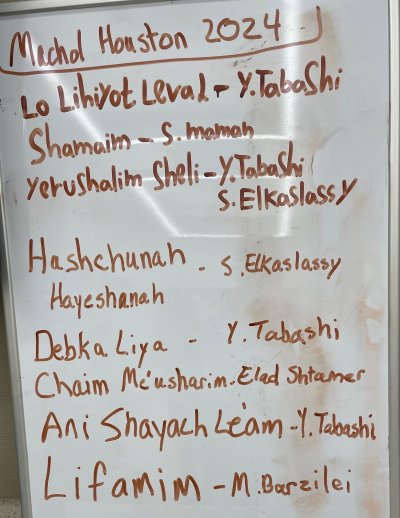 Machol Houston 2024
Lo Lihiyot Levad - Y.Tabashi
Shamaim - S. maman
Yerushalim Sheli - Y.Tabashi
S.Elkaslassy
Hashchunah - S.Elkaslassy
Hayeshanah
Debka Liya - Y. Tabashi
Chaim Me'usharim - Elad Shtamer
Ani Shayach Le'am - Y. Tabashi
Lifamim - M.Barzilei